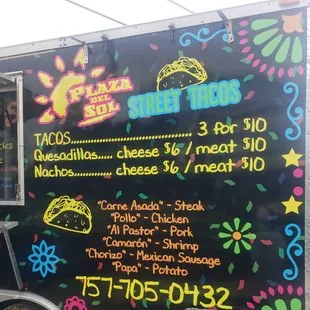 PLAZA
DEL
SOL
STREET TACOS
TACOS................................ 3 for $10
Quesadillas..... cheese $6 / meat $10
Nachos............ cheese $6 / meat $10
"Carne Asada" - Steak
"Pollo" - Chicken
"Al Pastor" - Pork
"Camarón" - Shrimp
"Chorizo" - Mexican Sausage
"Papa" - Potato
757-705-0432